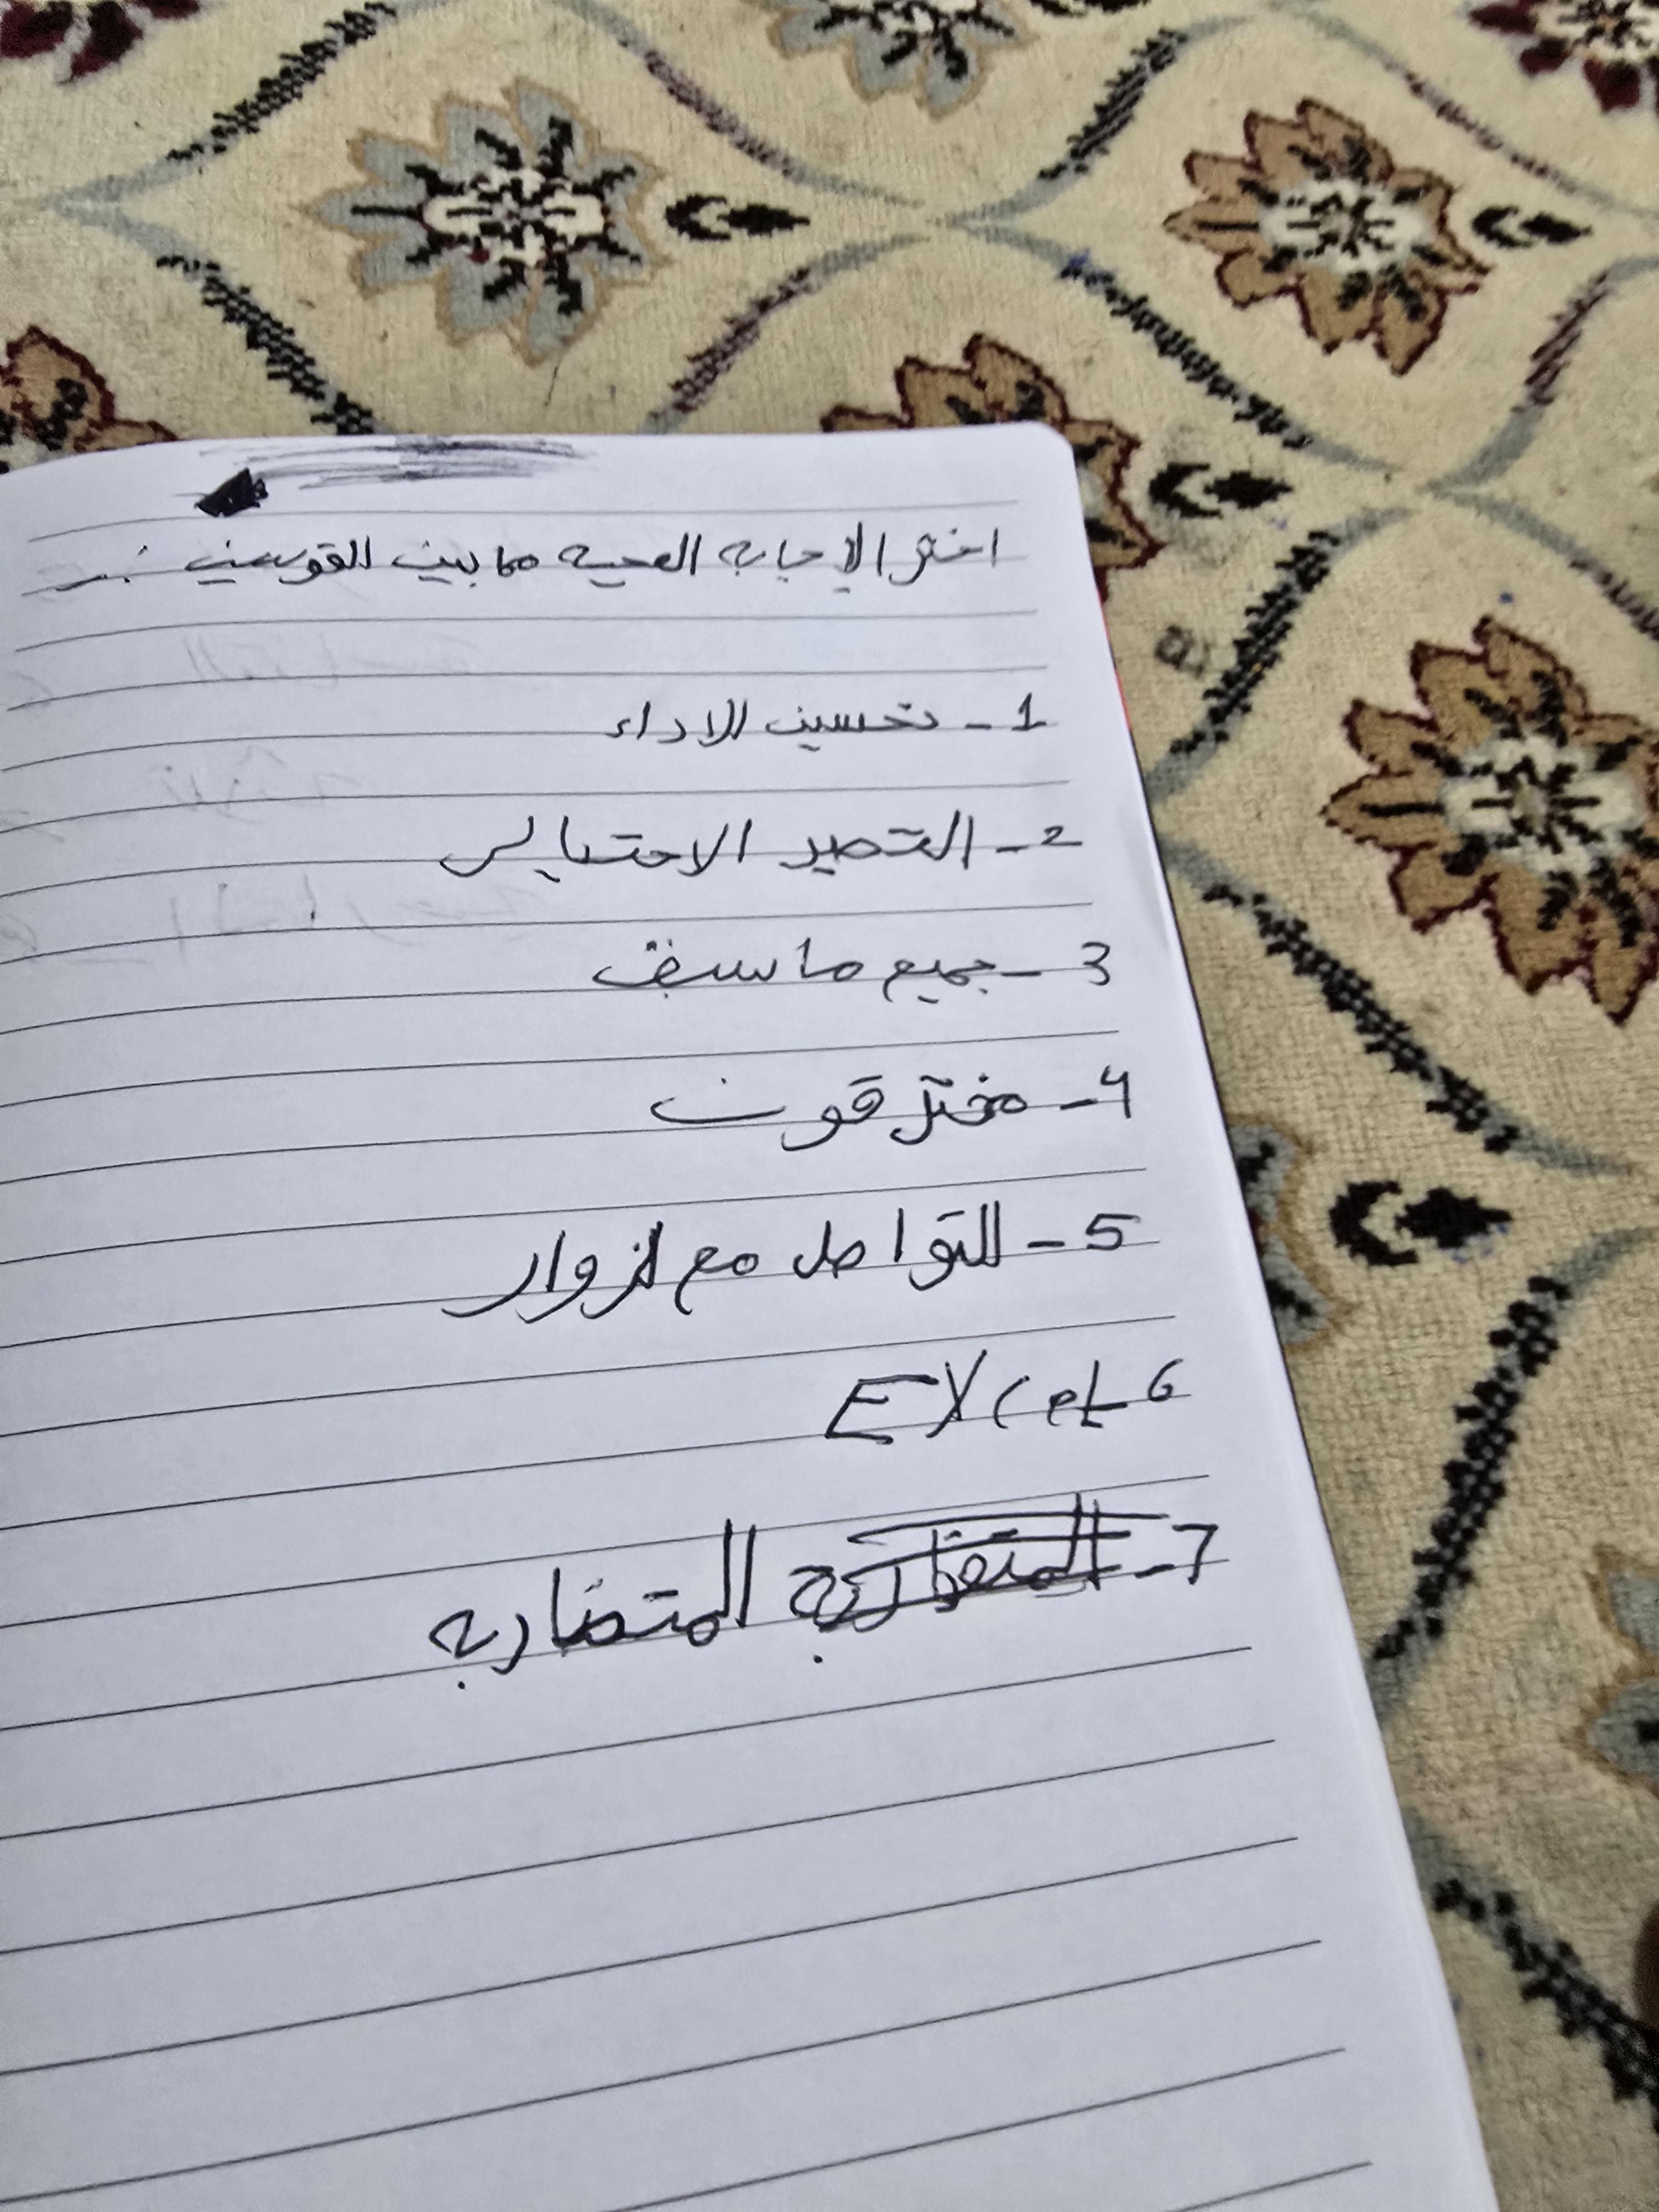 اختر الإجابه الصحيه مما بين القوسين :-
1- تحسين الاداء
2- التصيد الاحتيالي
3- جميع ما سبق
4- مخترقون
5- للتواصل مع لزوار
6- EXceL
7- المتضاربه